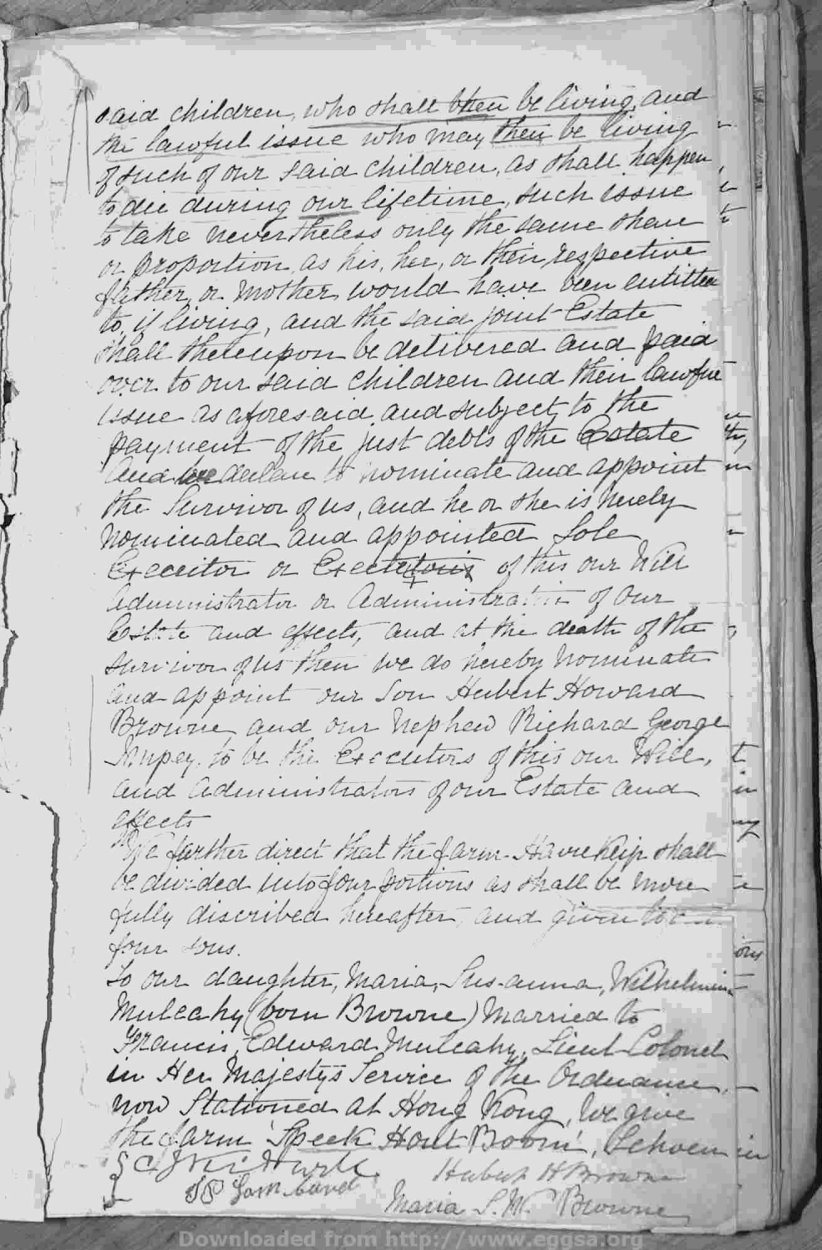 said children, who shall then be living, and
the lawful issue who may then be living
of such of our said children, as shall happen
to die during our lifetime, such issue
to take nevertheless only the same share
or proportion as his, her, or their respective
father, or Mother, would have been entitled
to, if living, and the said joint Estate
shall thereupon be delivered and paid
over to our said children and their lawful
issue as aforesaid and subject, to the
payment of the just debts of the Estate
And we declare to nominate and appoint
the Survivor of us, and he or she is hereby
nominated and appointed Sole
Executor or of this our Will
administrator or of our
Estate and effects, and at the death of the
survivor of us then we do hereby nominate
and appoint our Son Hubert Howard
Browne, and our Nephew Richard George
to be the Executors of this our Will,
and administrators of our Estate and
effects
We further direct that the farm shall
be divided into four portions as shall be more
fully discribed hereafter, and given to
four sons.
To our daughter, Maria, Susanna, Wilhelmina
Mulcahy (born Browne) Married to
Francis, Edward Mulcahy, Lieut Colonel
in Her Majestys Service of the Ordnance,
now Stationed at Hong Kong, we give
the farm 'Speek Hout Boom',
Hubert H Browne
Maria S. W. Browne
Downloaded from http://www.eggsa.org